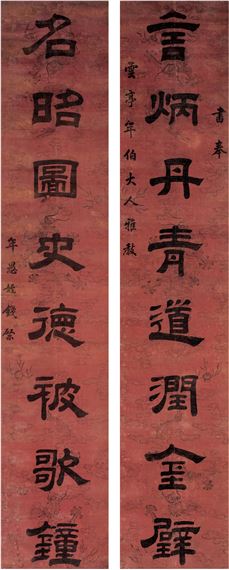 言炳丹青道潤金璧
名昭圖史德被歌鐘
書奉
雲亭年伯大人雅教
年愚姪錢棨